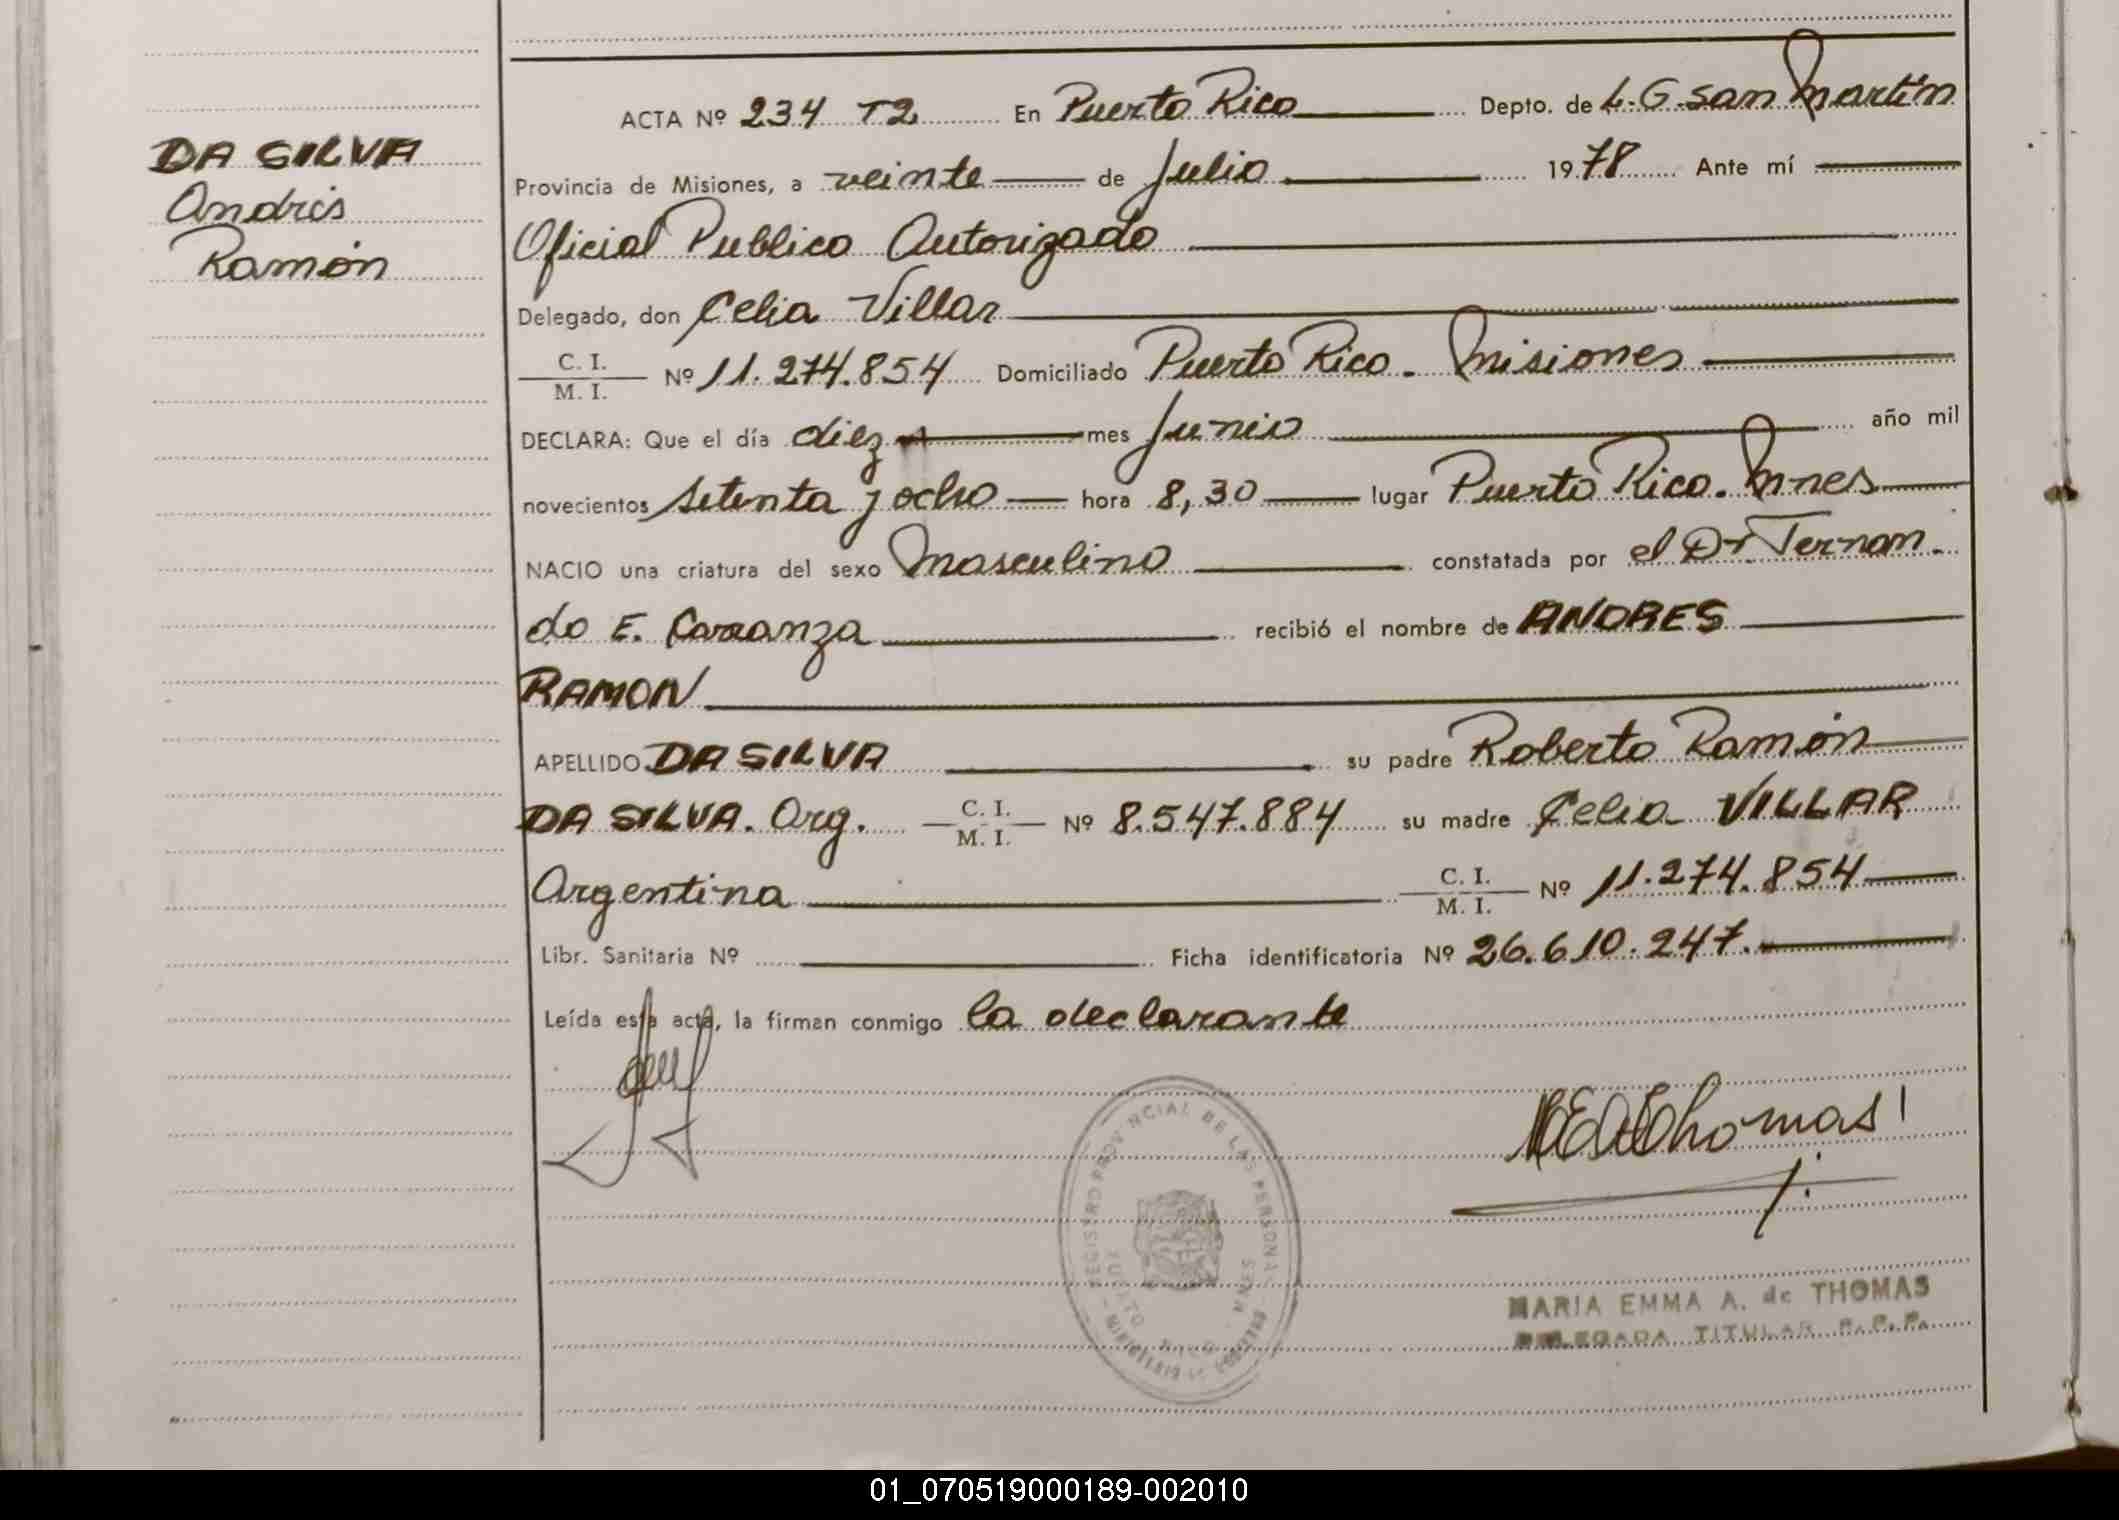 DA SILVA
Andrés
Ramón
ACTA Nº 234 T2 En Puerto Rico Depto. de L.G. San Martín
Provincia de Misiones, a veinte de Julio 1978 Ante mí
Oficial Publico Autorizado
Delegado, don Celia Villar
C. I.
M. I. Nº 11.274.854 Domiciliado Puerto Rico. Misiones
DECLARA: Que el día diez mes Junio año mil
novecientos setenta y ocho hora 8,30 lugar Puerto Rico. Mnes
NACIO una criatura del sexo Masculino constatada por el Dr Fernan
do E. Carranza recibió el nombre de ANDRES
RAMON
APELLIDO DA SILVA su padre Roberto Ramón
DA SILVA. Arg. C. I. M. I. Nº 8.547.884 su madre Celia VILLAR
Argentina C. I. M. I. Nº 11.274.854
Libr. Sanitaria Nº Ficha identificatoria Nº 26.610.247.
Leída esta acta, la firman conmigo la declarante
REGISTRO PROVINCIAL DE LAS PERSONAS
PUERTO RICO MNES
MARIA EMMA A. de THOMAS
DELEGADA TITULAR R.P.P.
01_070519000189-002010